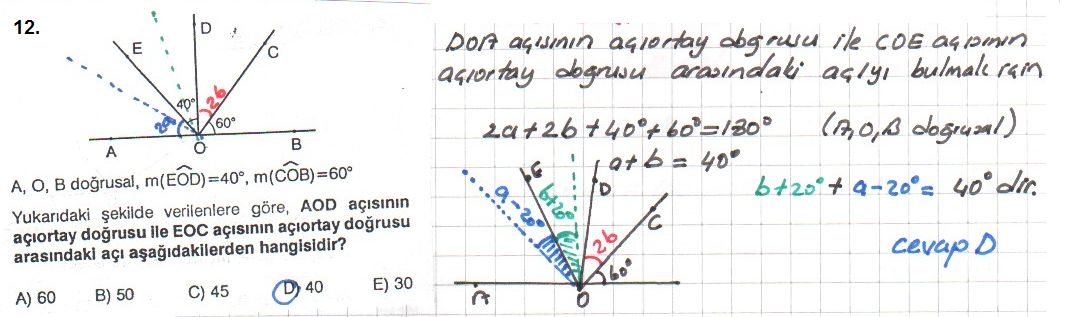 12.
E
D
C
40°
2b
2a
60°
A
O
B
A, O, B doğrusal, m(EOD)=40°, m(COB)=60°
Yukarıdaki şekilde verilenlere göre, AOD açısının
açıortay doğrusu ile EOC açısının açıortay doğrusu
arasındaki açı aşağıdakilerden hangisidir?
A) 60 B) 50 C) 45 D) 40 E) 30
DOA açısının açıortay doğrusu ile COE açısının
açıortay doğrusu arasındaki açıyı bulmak için
2a+2b+40°+60°=180° (A,O,B doğrusal)
a+b=40°
b+20°+a-20°=40°dir.
cevap D
E
D
C
a-20°
b+20°
2b
60°
A
O